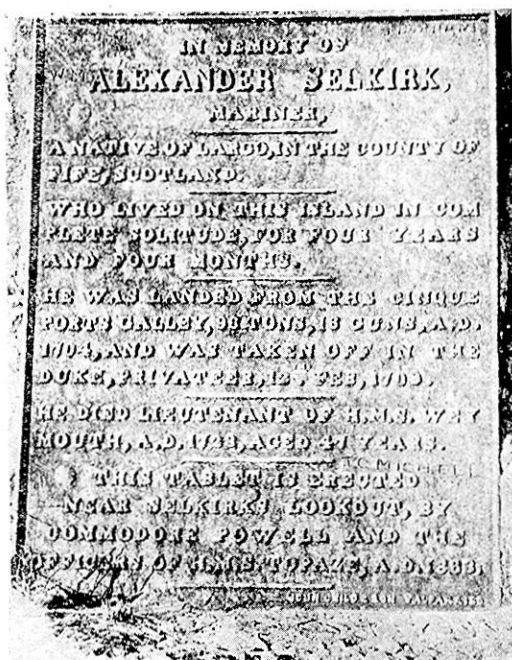 IN MEMORY OF
ALEXANDER SELKIRK,
MARINER,
A NATIVE OF LARGO, IN THE COUNTY OF
FIFE, SCOTLAND.
WHO LIVED ON THIS ISLAND IN COM
PLETE SOLITUDE, FOR FOUR YEARS
AND FOUR MONTHS.
HE WAS LANDED FROM THE CINQUE
PORTS GALLEY, TONS, GUNS, A.D.
1704, AND WAS TAKEN OFF IN THE
DUKE, PRIVATEER, 12TH FEB, 1709.
HE DIED LIEUTENANT OF H.M.S. WEY
MOUTH, A.D. 1723, AGED 47 YEARS.
T.C. MICHELL
THIS TABLET IS ERECTED
NEAR SELKIRKS LOOKOUT, BY
COMMODORE POWELL AND THE
OFFICERS OF H.M.S. TOPAZE, A.D. 1868.